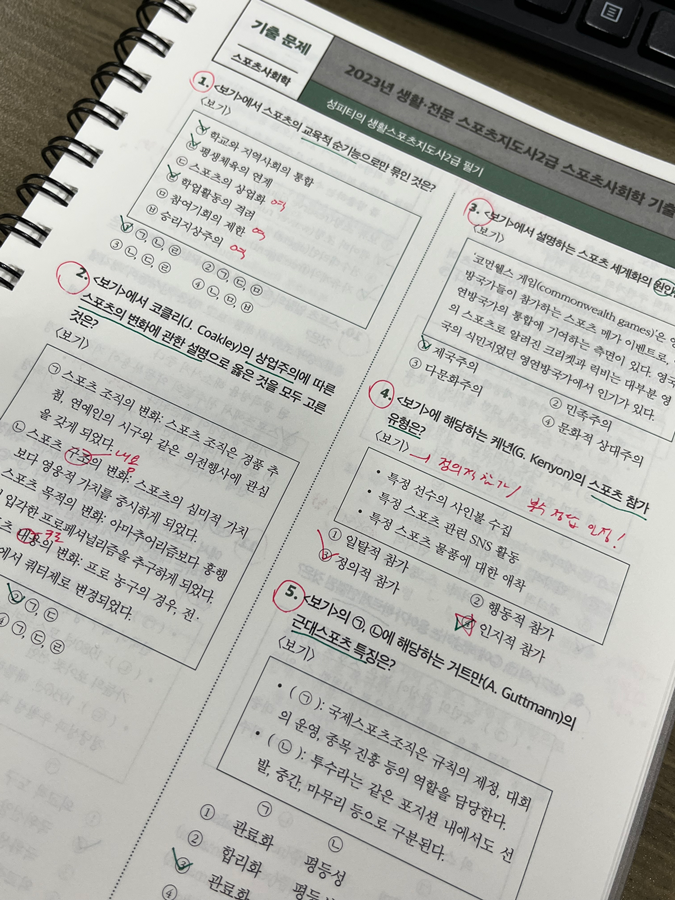 기출 문제
스포츠사회학
2023년 생활·전문 스포츠지도사2급 스포츠사회학 기출
성피티의 생활스포츠지도사2급 필기
1. <보기>에서 스포츠의 교육적 순기능으로만 묶인 것은?
<보기>
㉠ 학교와 지역사회의 통합
㉡ 평생체육의 연계
㉢ 스포츠의 상업화 역
㉣ 학업활동의 격려
㉤ 참여기회의 제한 역
㉥ 승리지상주의 역
① ㉠, ㉡, ㉣
② ㉠, ㉢, ㉤
③ ㉡, ㉢, ㉣
④ ㉡, ㉤, ㉥
2. <보기>에서 코클리(J. Coakley)의 상업주의에 따른
스포츠의 변화에 관한 설명으로 옳은 것을 모두 고른
것은?
<보기>
㉠ 스포츠 조직의 변화: 스포츠 조직은 경품 추
첨, 연예인의 시구와 같은 의전행사에 관심
을 갖게 되었다. 내용
㉡ 스포츠 구조의 변화: 스포츠의 심미적 가치
보다 영웅적 가치를 중시하게 되었다.
스포츠 목적의 변화: 아마추어리즘보다. 흥행
입각한 프로페셔널리즘을 추구하게 되었다.
츠 내용의 변화: 프로 농구의 경우, 전·
에서 쿼터제로 변경되었다.
② ㉠, ㉢
④ ㉠, ㉢, ㉣
3. <보기>에서 설명하는 스포츠 세계화의 원인
<보기>
'코먼웰스 게임(commonwealth games)'은 영
방국가들이 참가하는 스포츠 메가 이벤트로,
연방국가의 통합에 기여하는 측면이 있다. 영국
의 스포츠로 알려진 크리켓과 럭비는 대부분 영
국의 식민지였던 영연방국가에서 인기가 있다.
① 제국주의
② 민족주의
③ 다문화주의
④ 문화적 상대주의
4. <보기>에 해당하는 케년(G. Kenyon)의 스포츠 참가
유형은?
<보기> → 정의적 참가 / 복수 정답 인정!
• 특정 선수의 사인볼 수집
• 특정 스포츠 관련 SNS 활동
• 특정 스포츠 물품에 대한 애착
① 일탈적 참가
② 행동적 참가
③ 정의적 참가
④ 인지적 참가
5. <보기>의 ㉠, ㉡에 해당하는 거트만(A. Guttmann)의
근대스포츠 특징은?
<보기>
• ( ㉠ ): 국제스포츠조직은 규칙의 제정, 대회
의 운영, 종목 진흥 등의 역할을 담당한다.
• ( ㉡ ): 투수라는 같은 포지션 내에서도 선
발, 중간, 마무리 등으로 구분된다.
㉠ ㉡
① 관료화 평등성
② 합리화 평등
③ 관료화
④